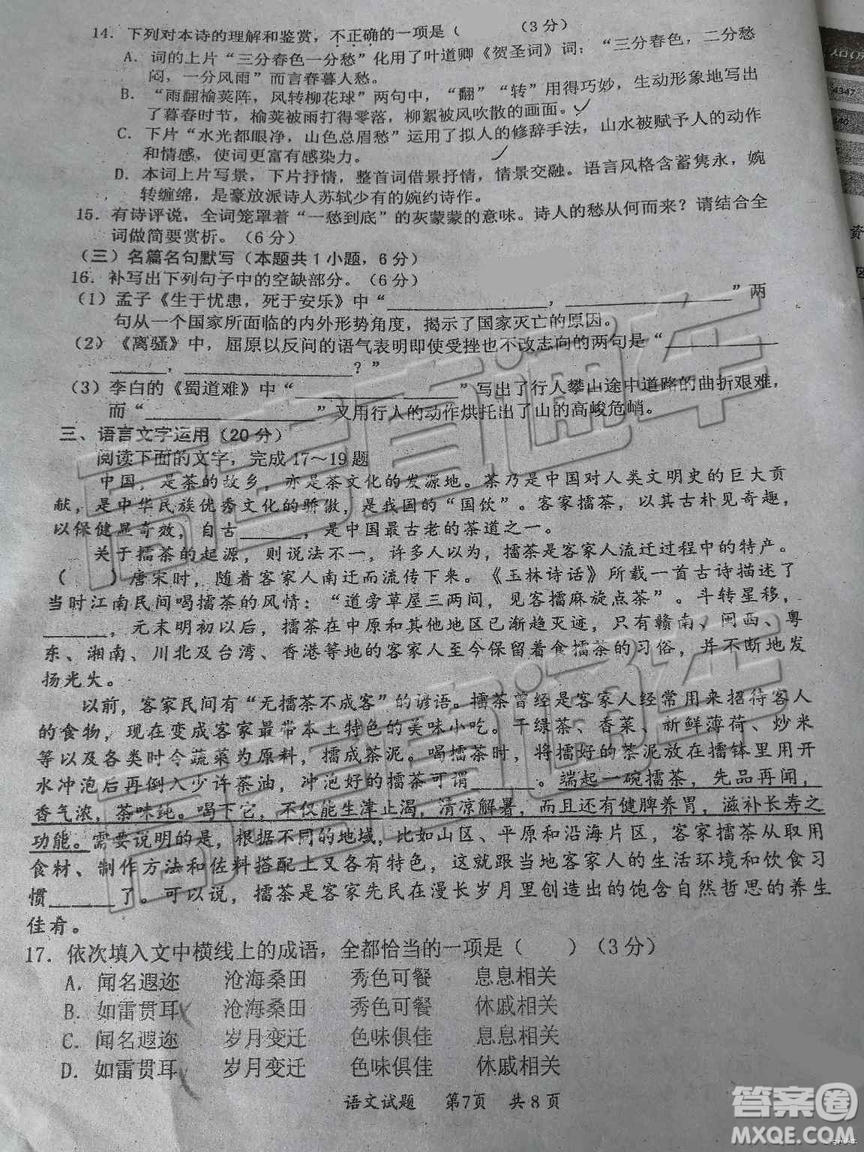 14．下列对本诗的理解和鉴赏，不正确的一项是（　　（3分）
A．词的上片“三分春色一分愁”化用了叶道卿《贺圣词》词：“三分春色，二分愁
闷，一分风雨”而言春暮人愁。
B．“雨翻榆荚阵，风转柳花球”两句中，“翻”“转”用得巧妙，生动形象地写出
了暮春时节，榆荚被雨打得零落，柳絮被风吹散的画面。
C．下片“水光都眼净，山色总眉愁”运用了拟人的修辞手法，山水被赋予人的动作
和情感，使词更富有感染力。
D．本词上片写景，下片抒情，整首词借景抒情，情景交融。语言风格含蓄隽永，婉
转缠绵，是豪放派诗人苏轼少有的婉约诗作。
15．有诗评说，全词笼罩着“一愁到底”的灰蒙蒙的意味。诗人的愁从何而来？请结合全
词做简要赏析。（6分）
（三）名篇名句默写（本题共1小题，6分）
16．补写出下列句子中的空缺部分。（6分）
（1）孟子《生于忧患，死于安乐》中“________，________”两
句从一个国家所面临的内外形势角度，揭示了国家灭亡的原因。
（2）《离骚》中，屈原以反问的语气表明即使受挫也不改志向的两句是“________
________，________？”
（3）李白的《蜀道难》中“________”写出了行人攀山途中道路的曲折艰难，
而“________”又用行人的动作烘托出了山的高峻危峭。
三、语言文字运用（20分）
阅读下面的文字，完成17～19题
中国，是茶的故乡，亦是茶文化的发源地。茶乃是中国对人类文明史的巨大贡
献，是中华民族优秀文化的骄傲，是我国的“国饮”。客家擂茶，以其古朴见奇趣，
以保健显奇效，自古______，是中国最古老的茶道之一。
关于擂茶的起源，则说法不一，许多人以为，擂茶是客家人流迁过程中的特产。
（　　）唐宋时，随着客家人南迁而流传下来。《玉林诗话》所载一首古诗描述了
当时江南民间喝擂茶的风情：“道旁草屋三两间，见客擂麻旋点茶”。斗转星移，
______，元末明初以后，擂茶在中原和其他地区已渐趋灭迹，只有赣南、闽西、粤
东、湘南、川北及台湾、香港等地的客家人至今保留着食擂茶的习俗，并不断地发
扬光大。
以前，客家民间有“无擂茶不成客”的谚语。擂茶曾经是客家人经常用来招待客人
的食物，现在变成客家最带本土特色的美味小吃。干绿茶、香菜、新鲜薄荷、炒米
等以及各类时令蔬菜为原料，擂成茶泥。喝擂茶时，将擂好的茶泥放在擂钵里用开
水冲泡后再倒入少许茶油，冲泡好的擂茶可谓______。端起一碗擂茶，先品再闻，
香气浓，茶味纯。喝下它，不仅能生津止渴，清凉解暑，而且还有健脾养胃，滋补长寿之
功能。需要说明的是，根据不同的地域，比如山区、平原和沿海片区，客家擂茶从取用
食材、制作方法和佐料搭配上又各有特色，这就跟当地客家人的生活环境和饮食习
惯______了。可以说，擂茶是客家先民在漫长岁月里创造出的饱含自然哲思的养生
佳肴。
17．依次填入文中横线上的成语，全都恰当的一项是（　　）（3分）
A．闻名遐迩　沧海桑田　秀色可餐　息息相关
B．如雷贯耳　沧海桑田　秀色可餐　休戚相关
C．闻名遐迩　岁月变迁　色味俱佳　息息相关
D．如雷贯耳　岁月变迁　色味俱佳　休戚相关
语文试题　第7页　共8页
高考直通车
高考直通车
答案圈
MXQE.COM